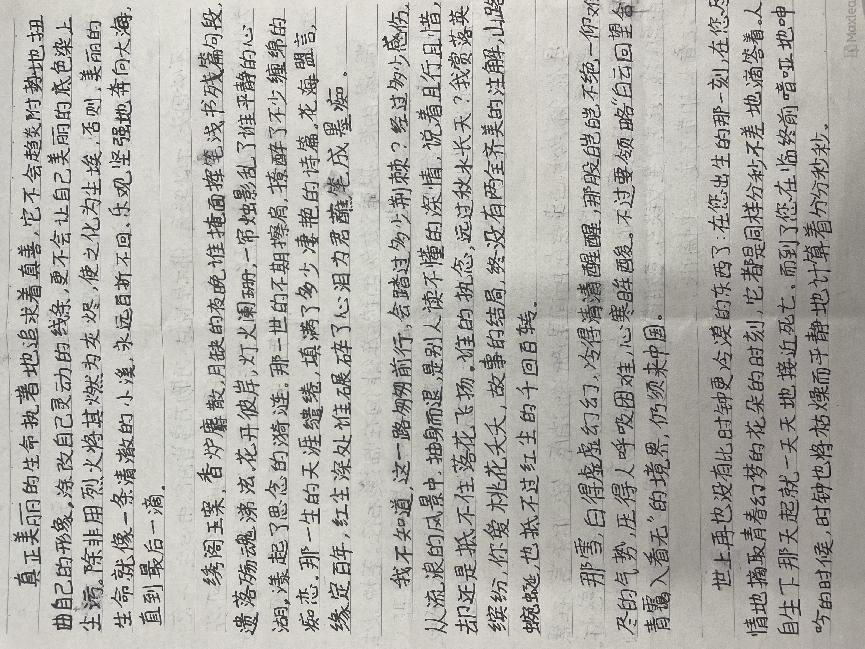 真正美丽的生命执著地追求着真善，它不会趋炎附势地扭
曲自己的形象，涂改自己灵动的线条，更不会让自己美丽的底色染上
尘污。除非用烈火将其燃为灰烬，使之化为尘埃，否则，美丽的
生命就像一条清澈的小溪，永远百折不回、乐观、坚强地奔向大海，
直到最后一滴。
绣阁玉案，香炉麝散，月缺的夜晚，谁掩面挥笔，戋书残篇问段，
遗落殇魂涕泫。花开彼岸，灯火阑珊，一帘烛影乱了谁平静的心
湖，漾起了思念的漪涟。那一世的不期擦肩，撩醉了不少缠绵的
痴恋，那一生的天涯缱绻，填满了多少凄艳的诗篇。花海盟言，
缘定百年，红尘深处谁碾碎了心泪为君蘸笔成墨痴。
我不知道，这一路匆匆前行，会踏过多少荆棘？经过多少感伤。
从流浪的风景中，抽身而退，是别人读不懂的深情，说着且行且惜，
却还是抵不住落花飞扬。谁的执念，远过秋水长天？我赏落英
缤纷，你爱桃花夭夭，故事的结局，终没有两全齐美的注解，山路
蜿蜒，也抵不过红尘的千回百转。
那雪，白得虚虚幻幻，冷得清清醒醒，那股皑皑不绝一仰难
尽的气势，压得人呼吸困难，心寒眸酸。不过要领略“白云回望合
青霭入看无”的境界，仍须来中国。
世上再也没有比时钟更冷漠的东西了：在您出生的那一刻，在您尽
情地摘取青春幻梦的花朵的时刻，它都是同样分秒不差地滴答着。人
自生下那天起就一天天地接近死亡。而到了您在临终前喑哑地呻
吟的时候，时钟也将枯燥而平静地计算着分分秒秒。
Maxleaf